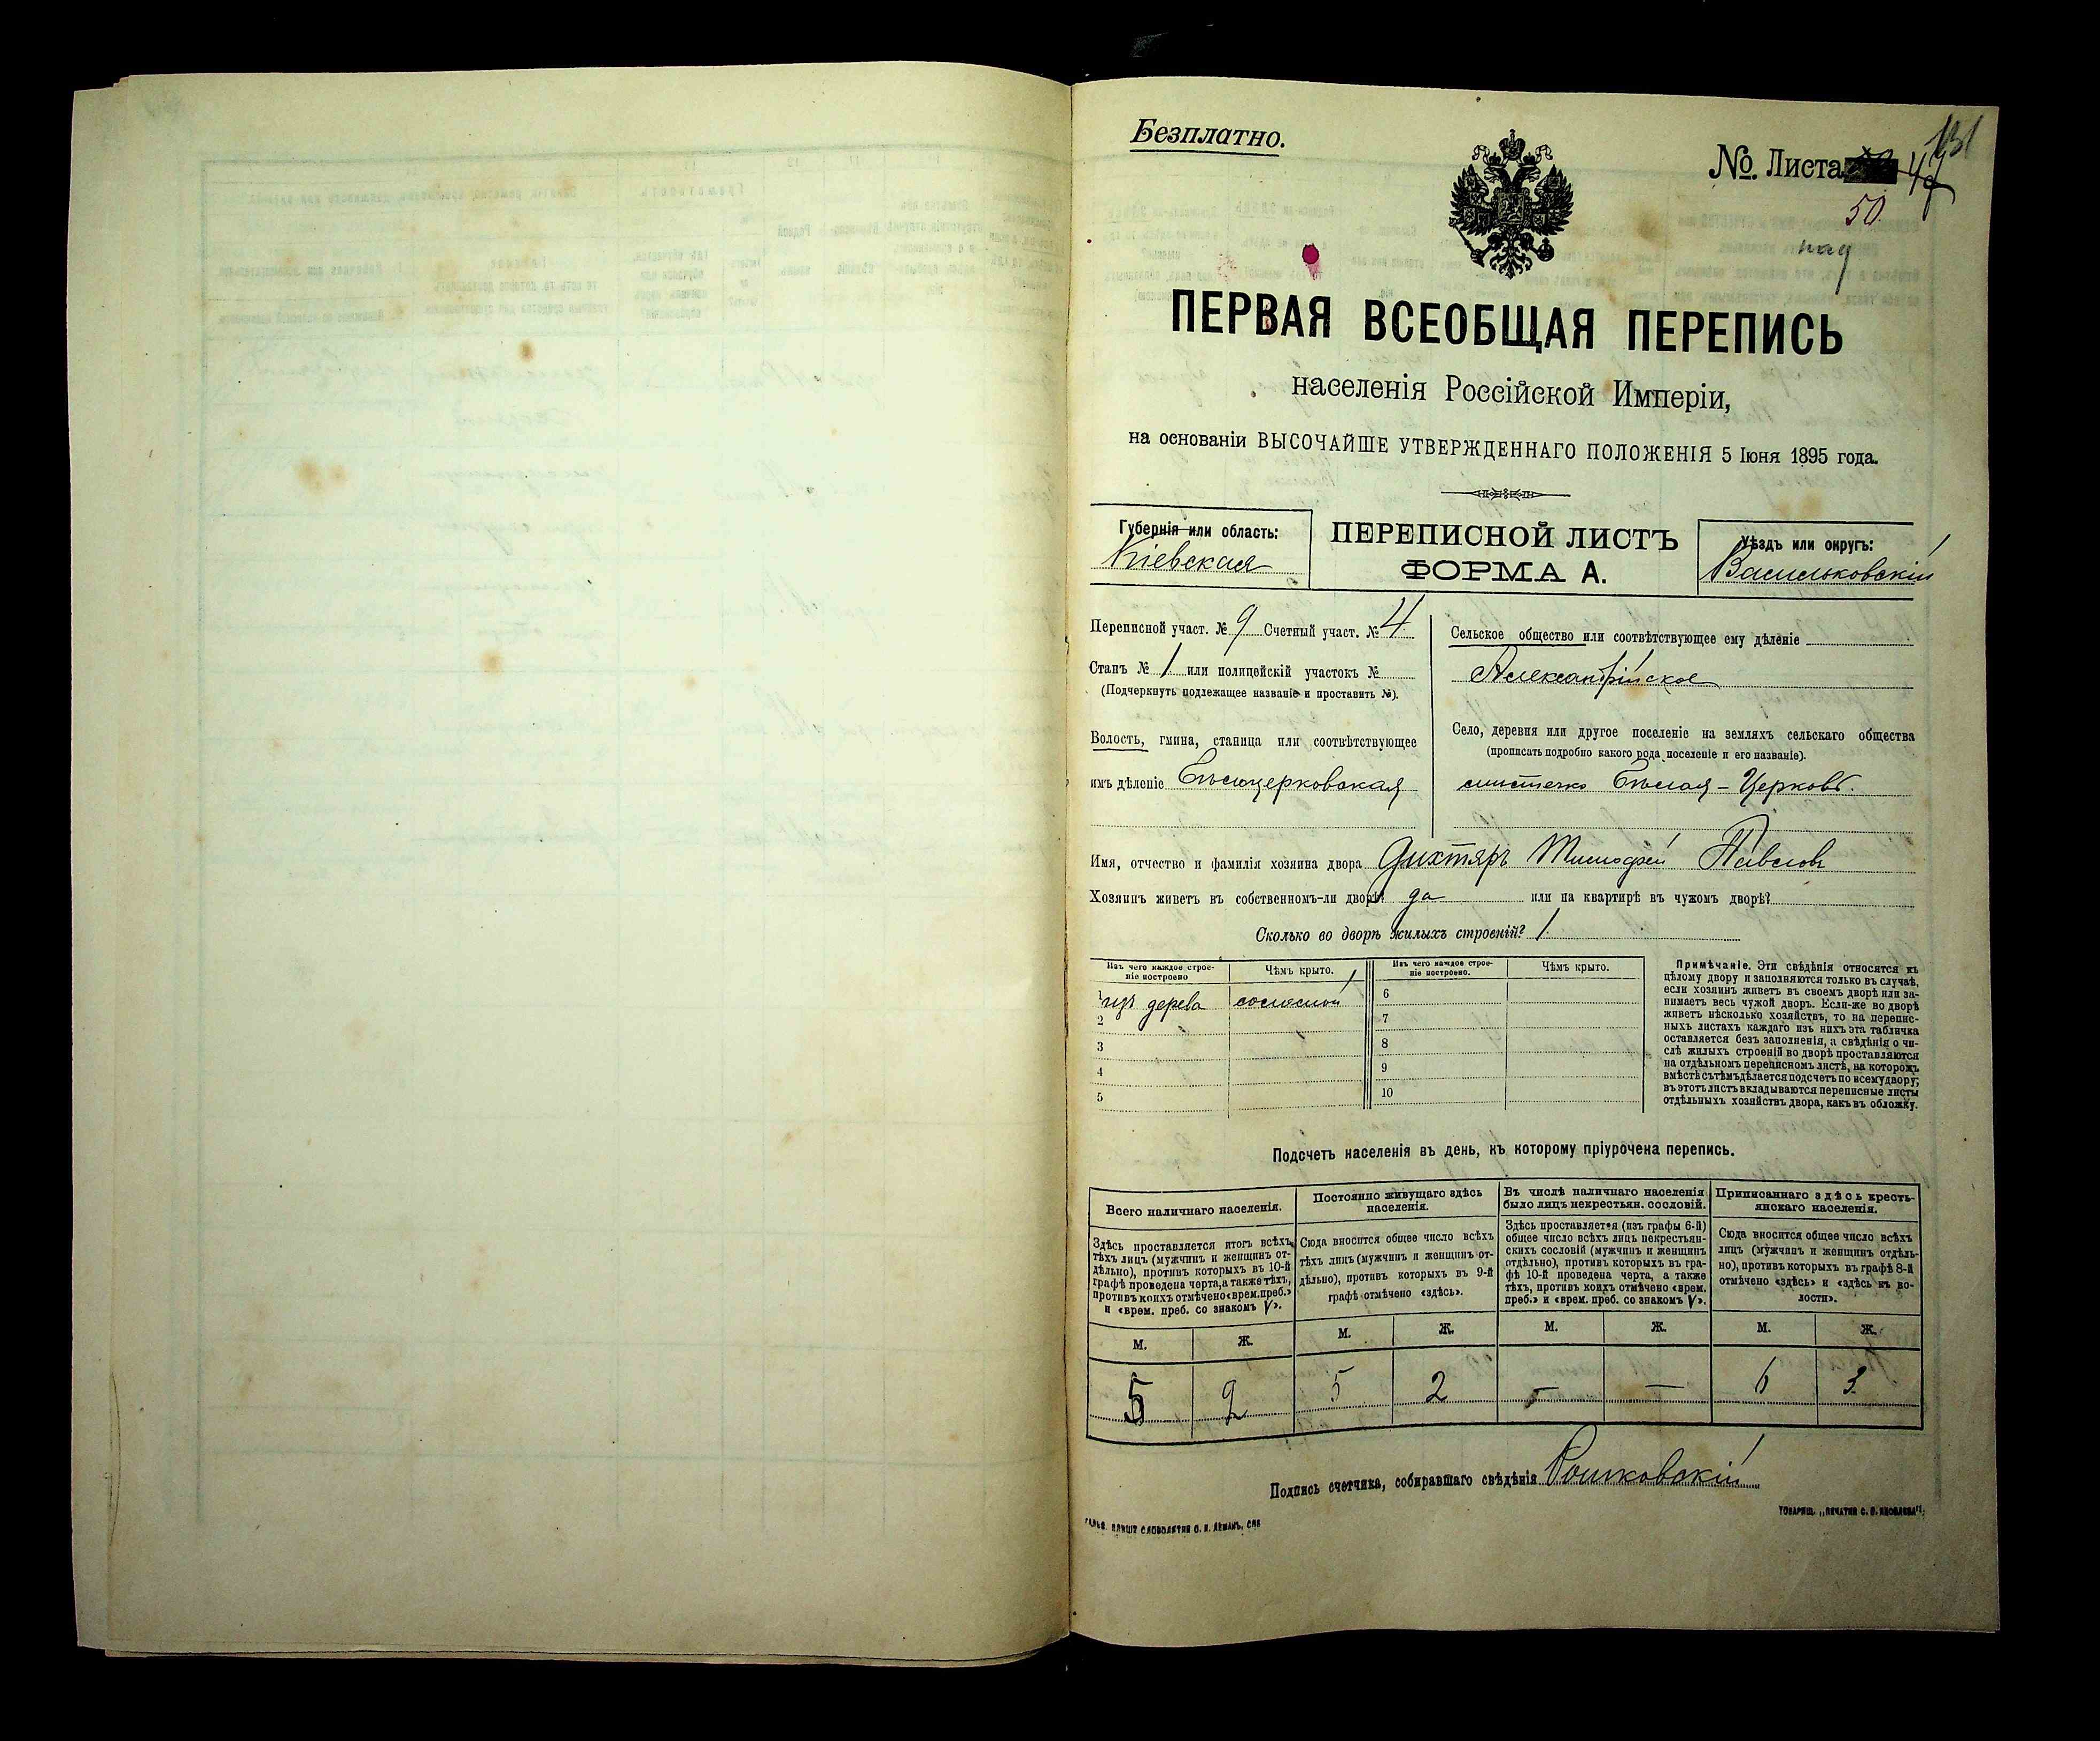 Безплатно.
131
№. Листа 47
50.
ПЕРВАЯ ВСЕОБЩАЯ ПЕРЕПИСЬ
населенія Россійской Имперіи,
на основаніи ВЫСОЧАЙШЕ УТВЕРЖДЕННАГО ПОЛОЖЕНІЯ 5 Іюня 1895 года.
Губернія или область:
Кіевская
ПЕРЕПИСНОЙ ЛИСТЪ
ФОРМА А.
Уѣздъ или округъ:
Васильковскій
Переписной участ. № 9 Счетный участ. № 4
Станъ № 1 или полицейскій участокъ №
(Подчеркнуть подлежащее названіе и проставить №).
Волость, гмина, станица или соотвѣтствующее
имъ дѣленіе Бѣлоцерковская
Сельское общество или соотвѣтствующее ему дѣленіе
Александрійское
Село, деревня или другое поселеніе на земляхъ сельскаго общества
(прописать подробно какого рода поселеніе и его названіе).
мѣстечко Бѣлая-Церковь.
Имя, отчество и фамилія хозяина двора Дихтяръ Тимофей Павловъ
Хозяинъ живетъ въ собственномъ-ли дворѣ? да или на квартирѣ въ чужомъ дворѣ?
Сколько во дворѣ жилыхъ строеній? 1
Изъ чего каждое строе-
ніе построено
Чѣмъ крыто.
Изъ чего каждое строе-
ніе построено.
Чѣмъ крыто.
1 изъ дерева соломой
2
3
4
5
6
7
8
9
10
Примѣчаніе. Эти свѣдѣнія относятся къ
цѣлому двору и заполняются только въ случаѣ,
если хозяинъ живетъ въ своемъ дворѣ или за-
нимаетъ весь чужой дворъ. Если-же во дворѣ
живетъ нѣсколько хозяйствъ, то на перепис-
ныхъ листахъ каждаго изъ нихъ эта табличка
оставляется безъ заполненія, а свѣдѣнія о чи-
слѣ жилыхъ строеній во дворѣ проставляются
на отдѣльномъ переписномъ листѣ, на которомъ
вмѣстѣ съ тѣмъ дѣлается подсчетъ по всему двору;
въ этотъ листъ вкладываются переписные листы
отдѣльныхъ хозяйствъ двора, какъ въ обложку.
Подсчетъ населенія въ день, къ которому пріурочена перепись.
Всего наличнаго населенія.
Здѣсь проставляется итогъ всѣхъ
тѣхъ лицъ (мужчинъ и женщинъ от-
дѣльно), противъ которыхъ въ 10-й
графѣ проведена черта, а также тѣхъ,
противъ коихъ отмѣчено «врем. преб.»
и «врем. преб. со знакомъ V».
Постоянно живущаго здѣсь
населенія.
Сюда вносится общее число всѣхъ
тѣхъ лицъ (мужчинъ и женщинъ от-
дѣльно), противъ которыхъ въ 9-й
графѣ отмѣчено «здѣсь».
Въ числѣ наличнаго населенія
было лицъ некрестьян. сословій.
Здѣсь проставляется (изъ графы 6-й)
общее число всѣхъ лицъ некрестьян-
скихъ сословій (мужчинъ и женщинъ
отдѣльно), противъ которыхъ въ гра-
фѣ 10-й проведена черта, а также
тѣхъ, противъ коихъ отмѣчено «врем.
преб.» и «врем. преб. со знакомъ V».
Приписаннаго здѣсь кресть-
янскаго населенія.
Сюда вносится общее число всѣхъ
лицъ (мужчинъ и женщинъ отдѣль-
но), противъ которыхъ въ графѣ 8-й
отмѣчено «здѣсь» и «здѣсь къ во-
лости».
М. Ж. М. Ж. М. Ж. М. Ж.
5 2 5 2 — — 6 3
Подпись счетчика, собиравшаго свѣдѣнія Рошковскій
ТОВАРИЩ. „ПЕЧАТНЯ С. П. ЯКОВЛЕВА".